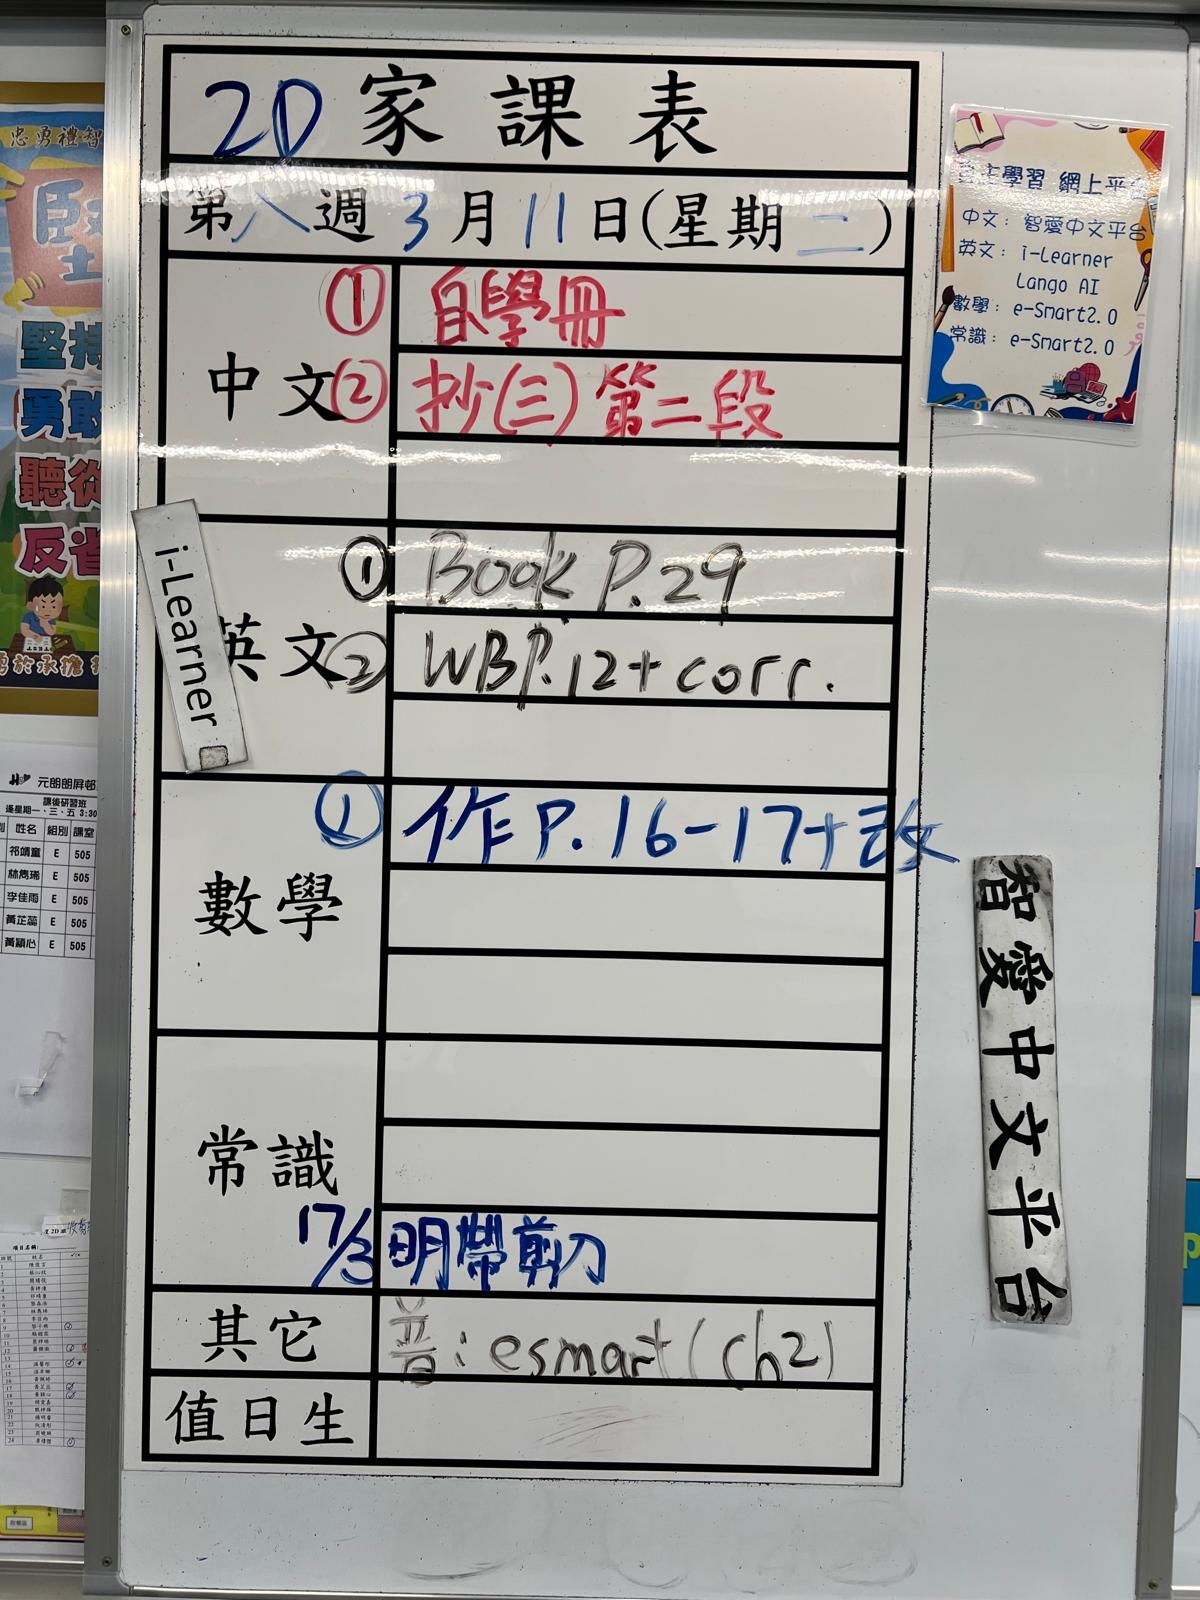 2D 家課表
第八週 3月11日(星期二)
中文
① 自學冊
② 抄(三)第二段
i-Learner
英文
① Book P.29
② WB P.12+corr.
數學
① 作P.16-17+改
常識
17/3 明帶剪刀
其它
普:esmart(ch2)
值日生
自主學習 網上平台
中文: 智愛中文平台
英文: i-Learner
Lango AI
數學: e-Smart2.0
常識: e-Smart2.0
智愛中文平台
忠勇禮智
堅
堅持
勇敢
聽從
反省
勇於承擔
元朗朗屏邨
課後研習班
逢星期一、三、五 3:30
姓名 組別 課室
祁靖童 E 505
林雋琋 E 505
李佳雨 E 505
黃芷蕊 E 505
黃穎心 E 505